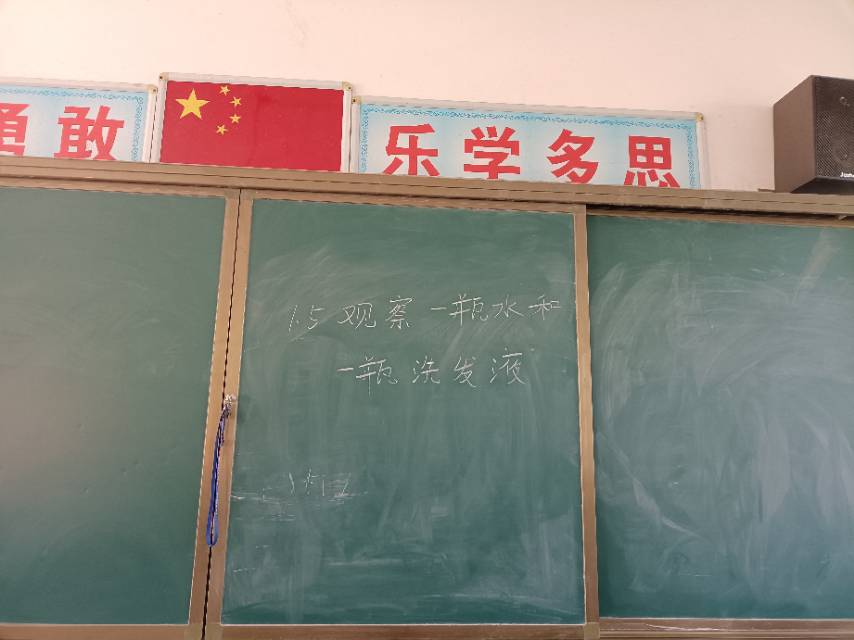 勇敢
乐学多思
1.5观察一瓶水和
一瓶洗发液